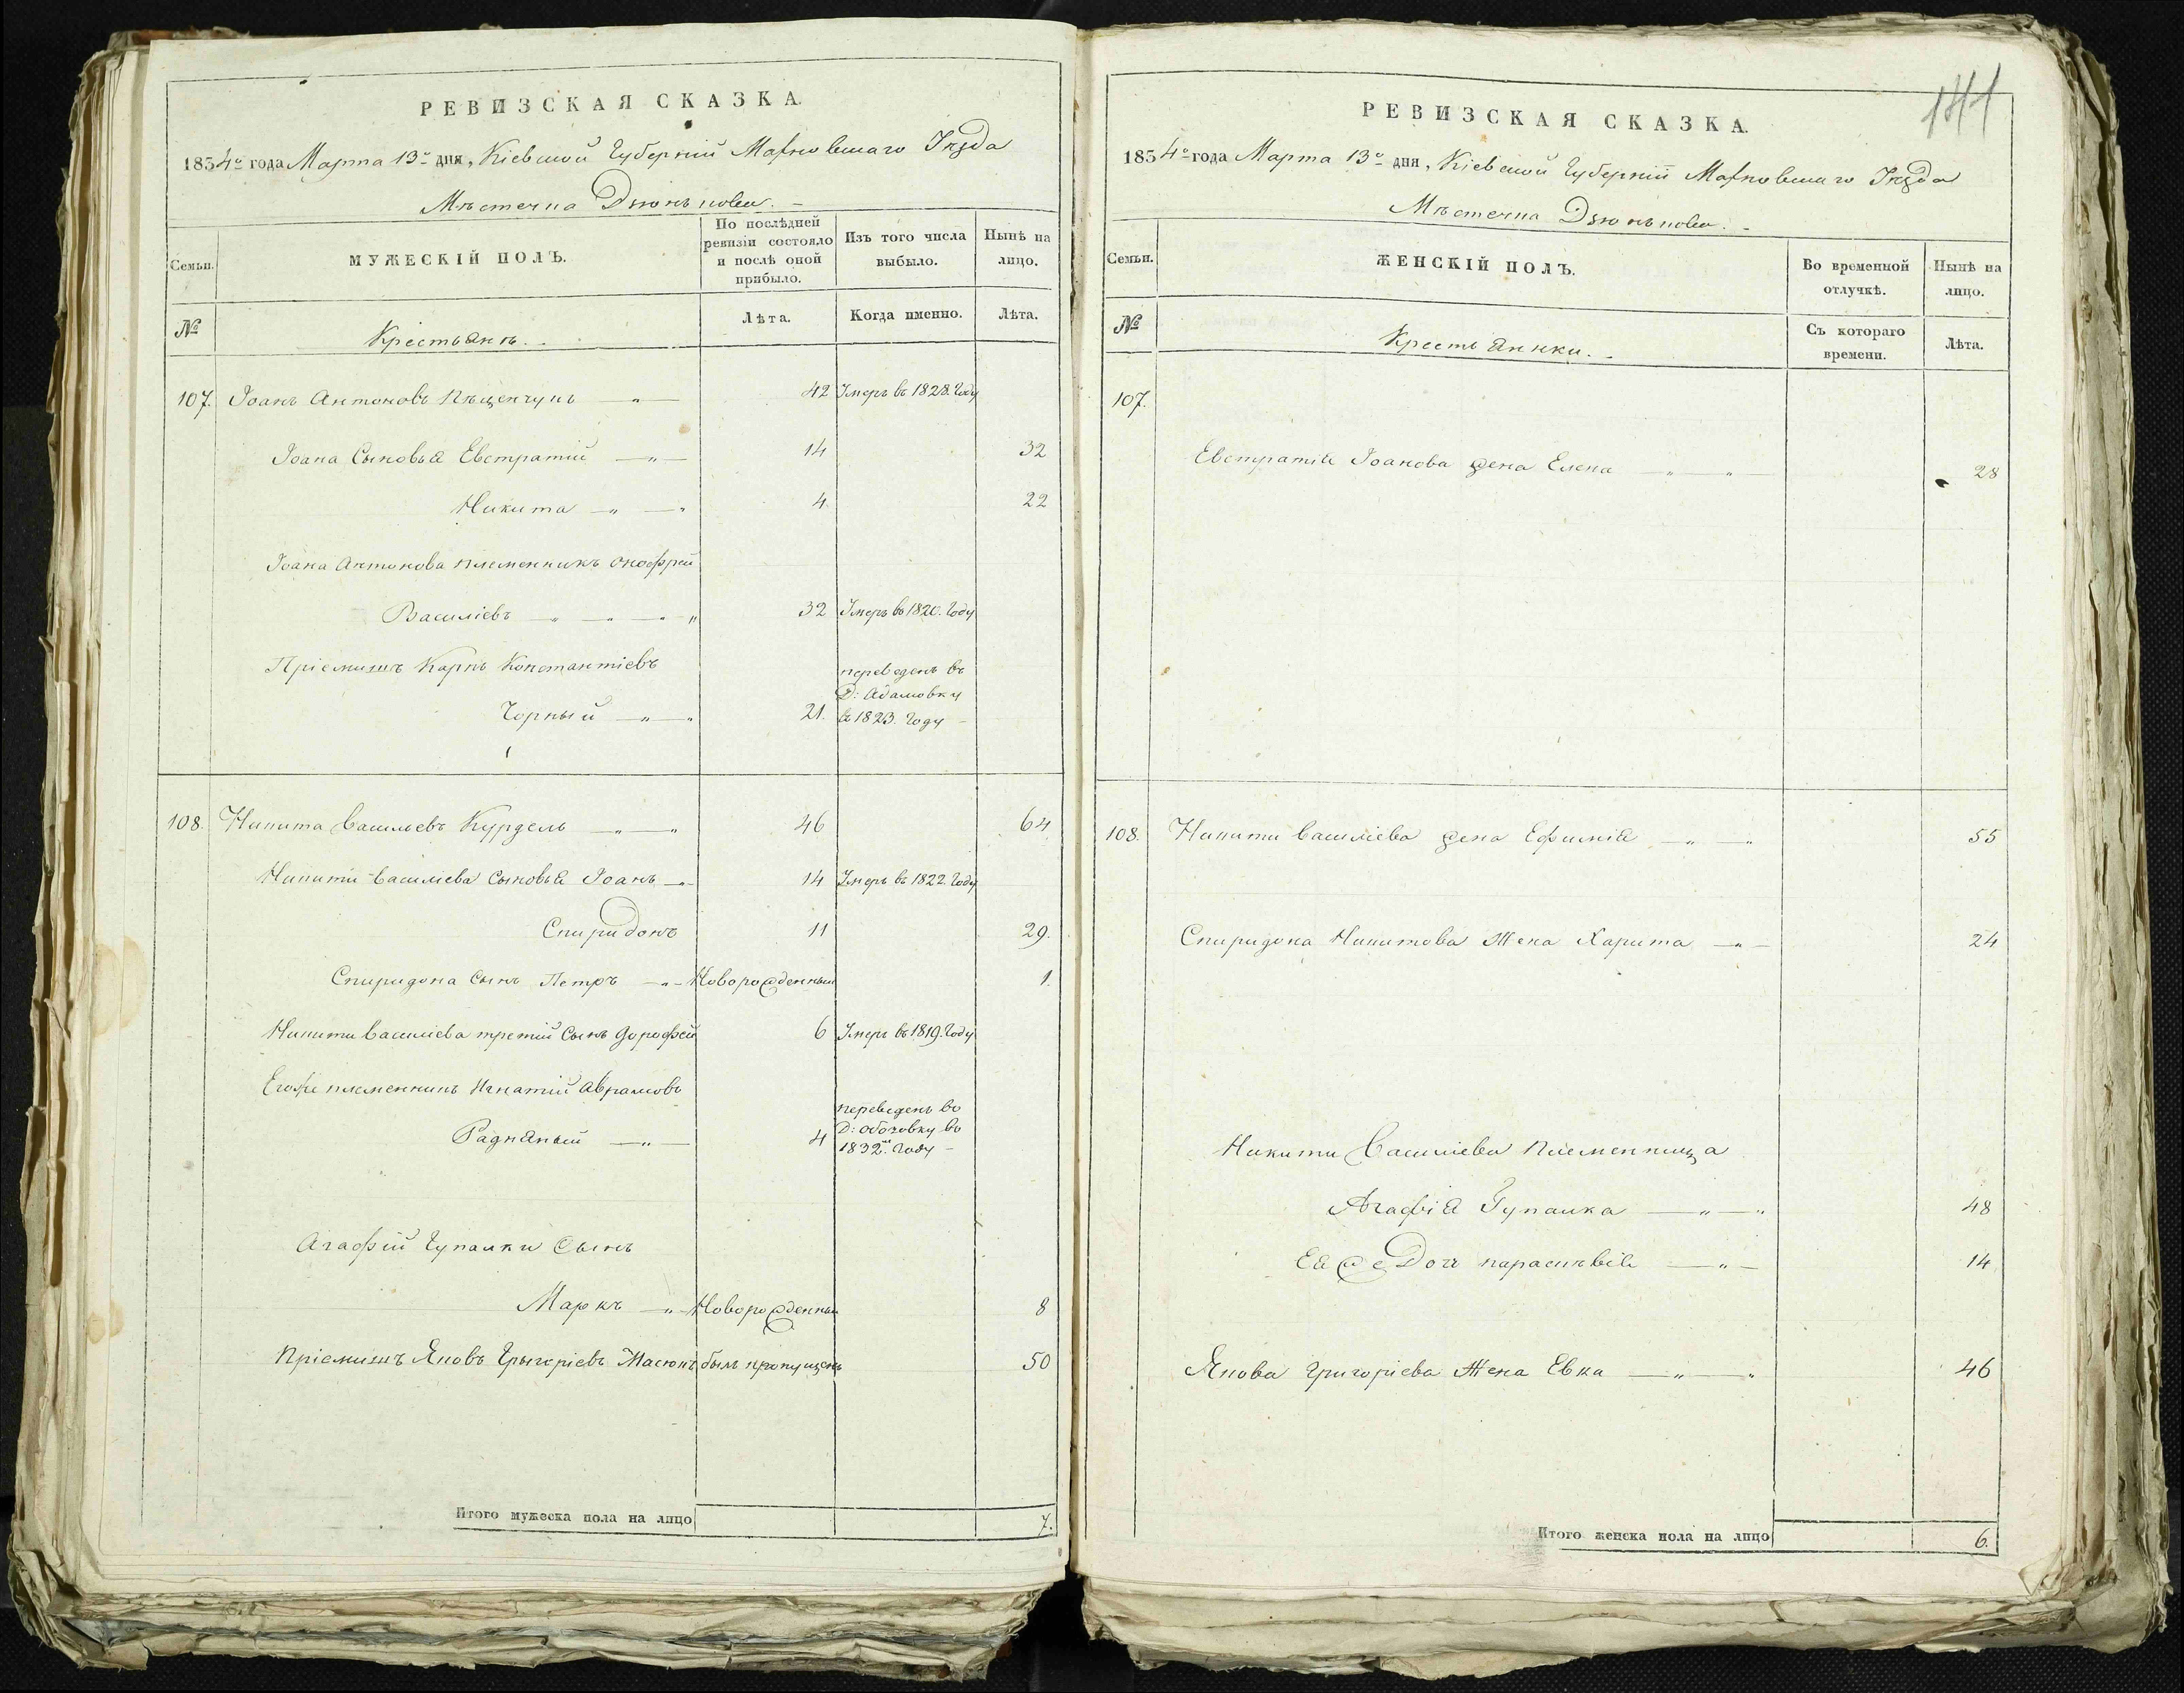 РЕВИЗСКАЯ СКАЗКА.
1834го года Марта 13го дня, Кіевской Губерніи Махновскаго Уѣзда
Мѣстечка Дзюнькова.
Семьи.
МУЖЕСКІЙ ПОЛЪ.
По послѣдней ревизіи состояло и послѣ оной прибыло.
Изъ того числа выбыло.
Нынѣ на лицо.
№
Крестьянъ.
Лѣта.
Когда именно.
Лѣта.
107. Іоанъ Антоновъ 42 Умеръ въ 1828. Году
Іоана Сыновья Евстратій 14 32
Никита 4. 22
Іоана Антонова племенникъ Онофрей
Василіевъ 32 Умеръ въ 1820. Году
Пріемышъ Карпъ Константіевъ
переведенъ въ
Д: Адамовку
Чорный 21. въ 1823. Году
108. Никита Васильевъ Курдель 46 64
Никиты Василіева Сыновья Іоанъ 14 Умеръ въ 1822. Году
Спиридонъ 11 29.
Спиридона Сынъ Петръ Новорожденный 1.
Никиты Василіева третій Сынъ Дорофей 6 Умеръ въ 1819. Году
Егоже племенникъ Игнатій Аврамовъ
переведенъ во
Д: Обозовку во
4 1832м. Году
Агафій Чупалки Сынъ
Маркъ Новорожденный 8
Пріемышъ Яковъ Грыгоріевъ Масюкъ былъ пропущенъ 50
Итого мужеска пола на лицо 7.
141
РЕВИЗСКАЯ СКАЗКА.
1834го года Марта 13го дня, Кіевской Губерніи Махновскаго Уѣзда
Мѣстечка Дзюнькова.
Семьи.
ЖЕНСКІЙ ПОЛЪ.
Во временной отлучкѣ.
Нынѣ на лицо.
№
Крестьянки.
Съ котораго времени.
Лѣта.
107.
Евстратія Іоанова Жена Елена 28
108. Никиты Василіева Жена Ефимія 55
Спиридона Никитова Жена Харита 24
Никиты Василіева Племенница
Агафія Чупалка 48
Ея же Дочь Параскѣвія 14
Якова Григоріева Жена Евка 46
Итого женска пола на лицо 6.